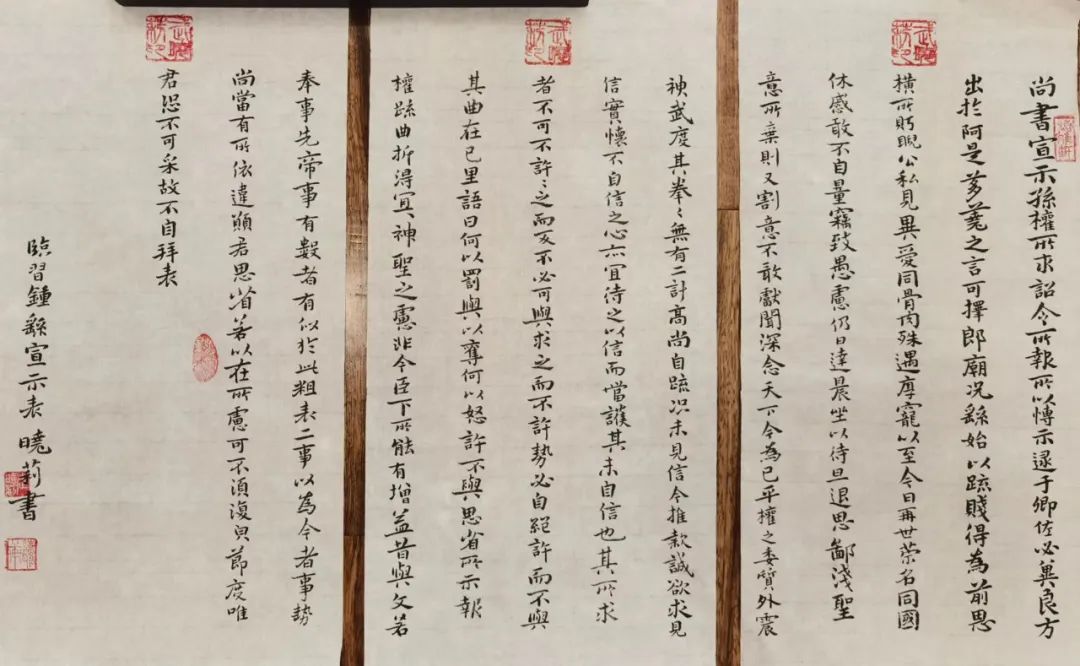 尚書宣示孫權所求詔令所報所以博示逮于卿佐必冀良方
出於阿是芻蕘之言可擇郎廟況繇始以疏賤得為前恩
橫所眄睨公私見異愛同骨肉殊遇厚寵以至今日再世榮名同國
休慼敢不自量竊致愚慮仍日達晨坐以待旦退思鄙淺聖
意所棄則又割意不敢獻聞深念天下今為已平權之委質外震
神武度其拳〻無有二計高尚自疏況未見信今推款誠欲求見
信實懷不自信之心亦宜待之以信而當護其未自信也其所求
者不可不許〻之而反不必可與求之而不許勢必自絕許而不與
其曲在己里語曰何以罰與以奪何以怒許不與思省所示報
權疏曲折得宜神聖之慮非今臣下所能有增益昔與文若
奉事先帝事有數者有似於此粗表二事以為今者事勢
尚當有所依違願君思省若以在所慮可不須復貌節度唯
君恐不可采故不自拜表
臨習鍾繇宣示表 曉莉書